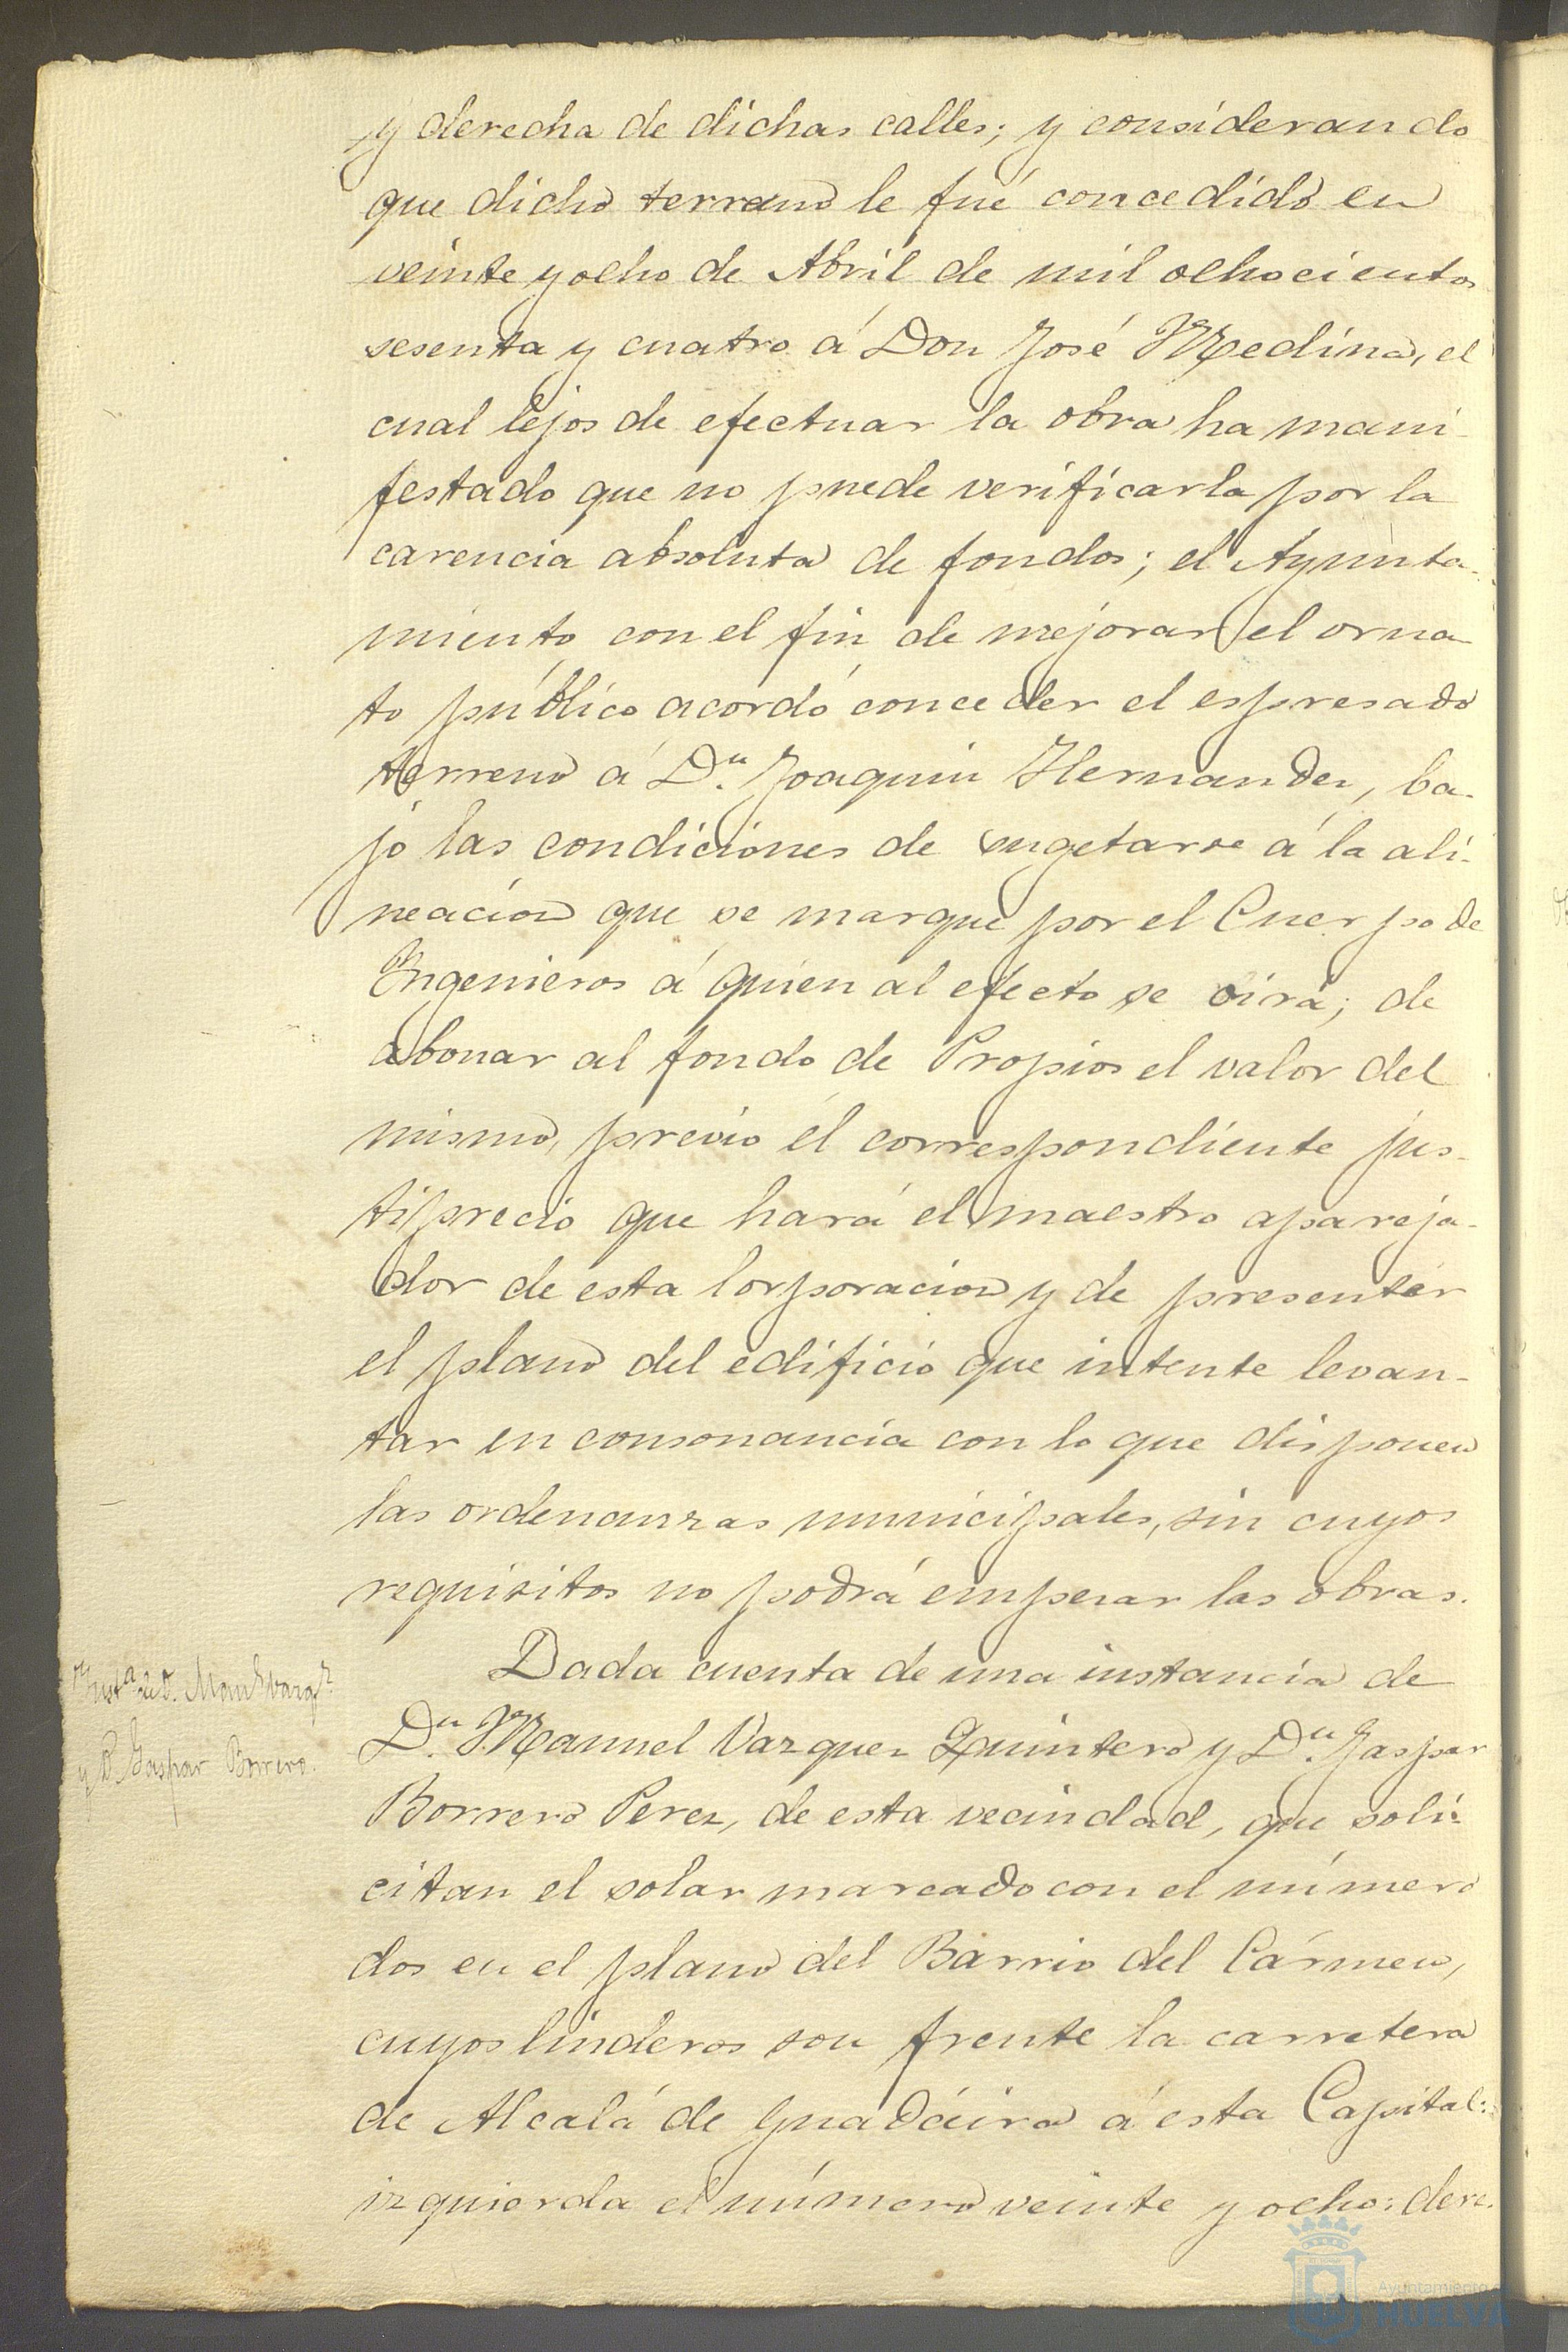 y derecha de dichas calles; y considerando
que dicho terreno le fué concedido en
veinte y ocho de Abril de mil ochocientos
sesenta y cuatro á Don José Medina, el
cual lejos de efectuar la obra ha mani-
festado que no puede verificarla por la
carencia absoluta de fondos; el Ayunta-
miento con el fin de mejorar el orna-
to público acordó conceder el espresado
terreno á Dn. Joaquin Hernandez, ba-
jo las condiciones de sugetarse á la ali-
neacion que se marque por el Cuerpo de
Ingenieros á quien al efecto se oirá; de
abonar al fondo de Propios el valor del
mismo, previo el correspondiente jus-
tiprecio que hará el maestro apareja-
dor de esta Corporacion y de presentar
el plano del edificio que intente levan-
tar en consonancia con lo que disponen
las ordenanzas municipales, sin cuyos
requisitos no podrá empezar las obras.
Insta. de D. Manl. Vazqz.
y D. Gaspar Borrero.
Dada cuenta de una instancia de
Dn. Manuel Vazquez Quintero y Dn. Gaspar
Borrero Perez, de esta vecindad, que soli-
citan el solar marcado con el número
dos en el plano del Barrio del Cármen,
cuyos linderos son frente la carretera
de Alcalá de Guadáira á esta Capital:
izquierda el número veinte y ocho: dere-
Ayuntamiento
HUELVA